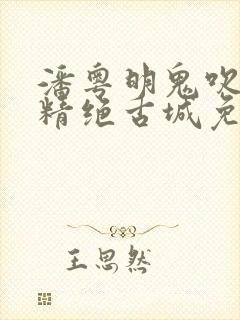 潘粤明鬼吹
精绝古城免
王思然